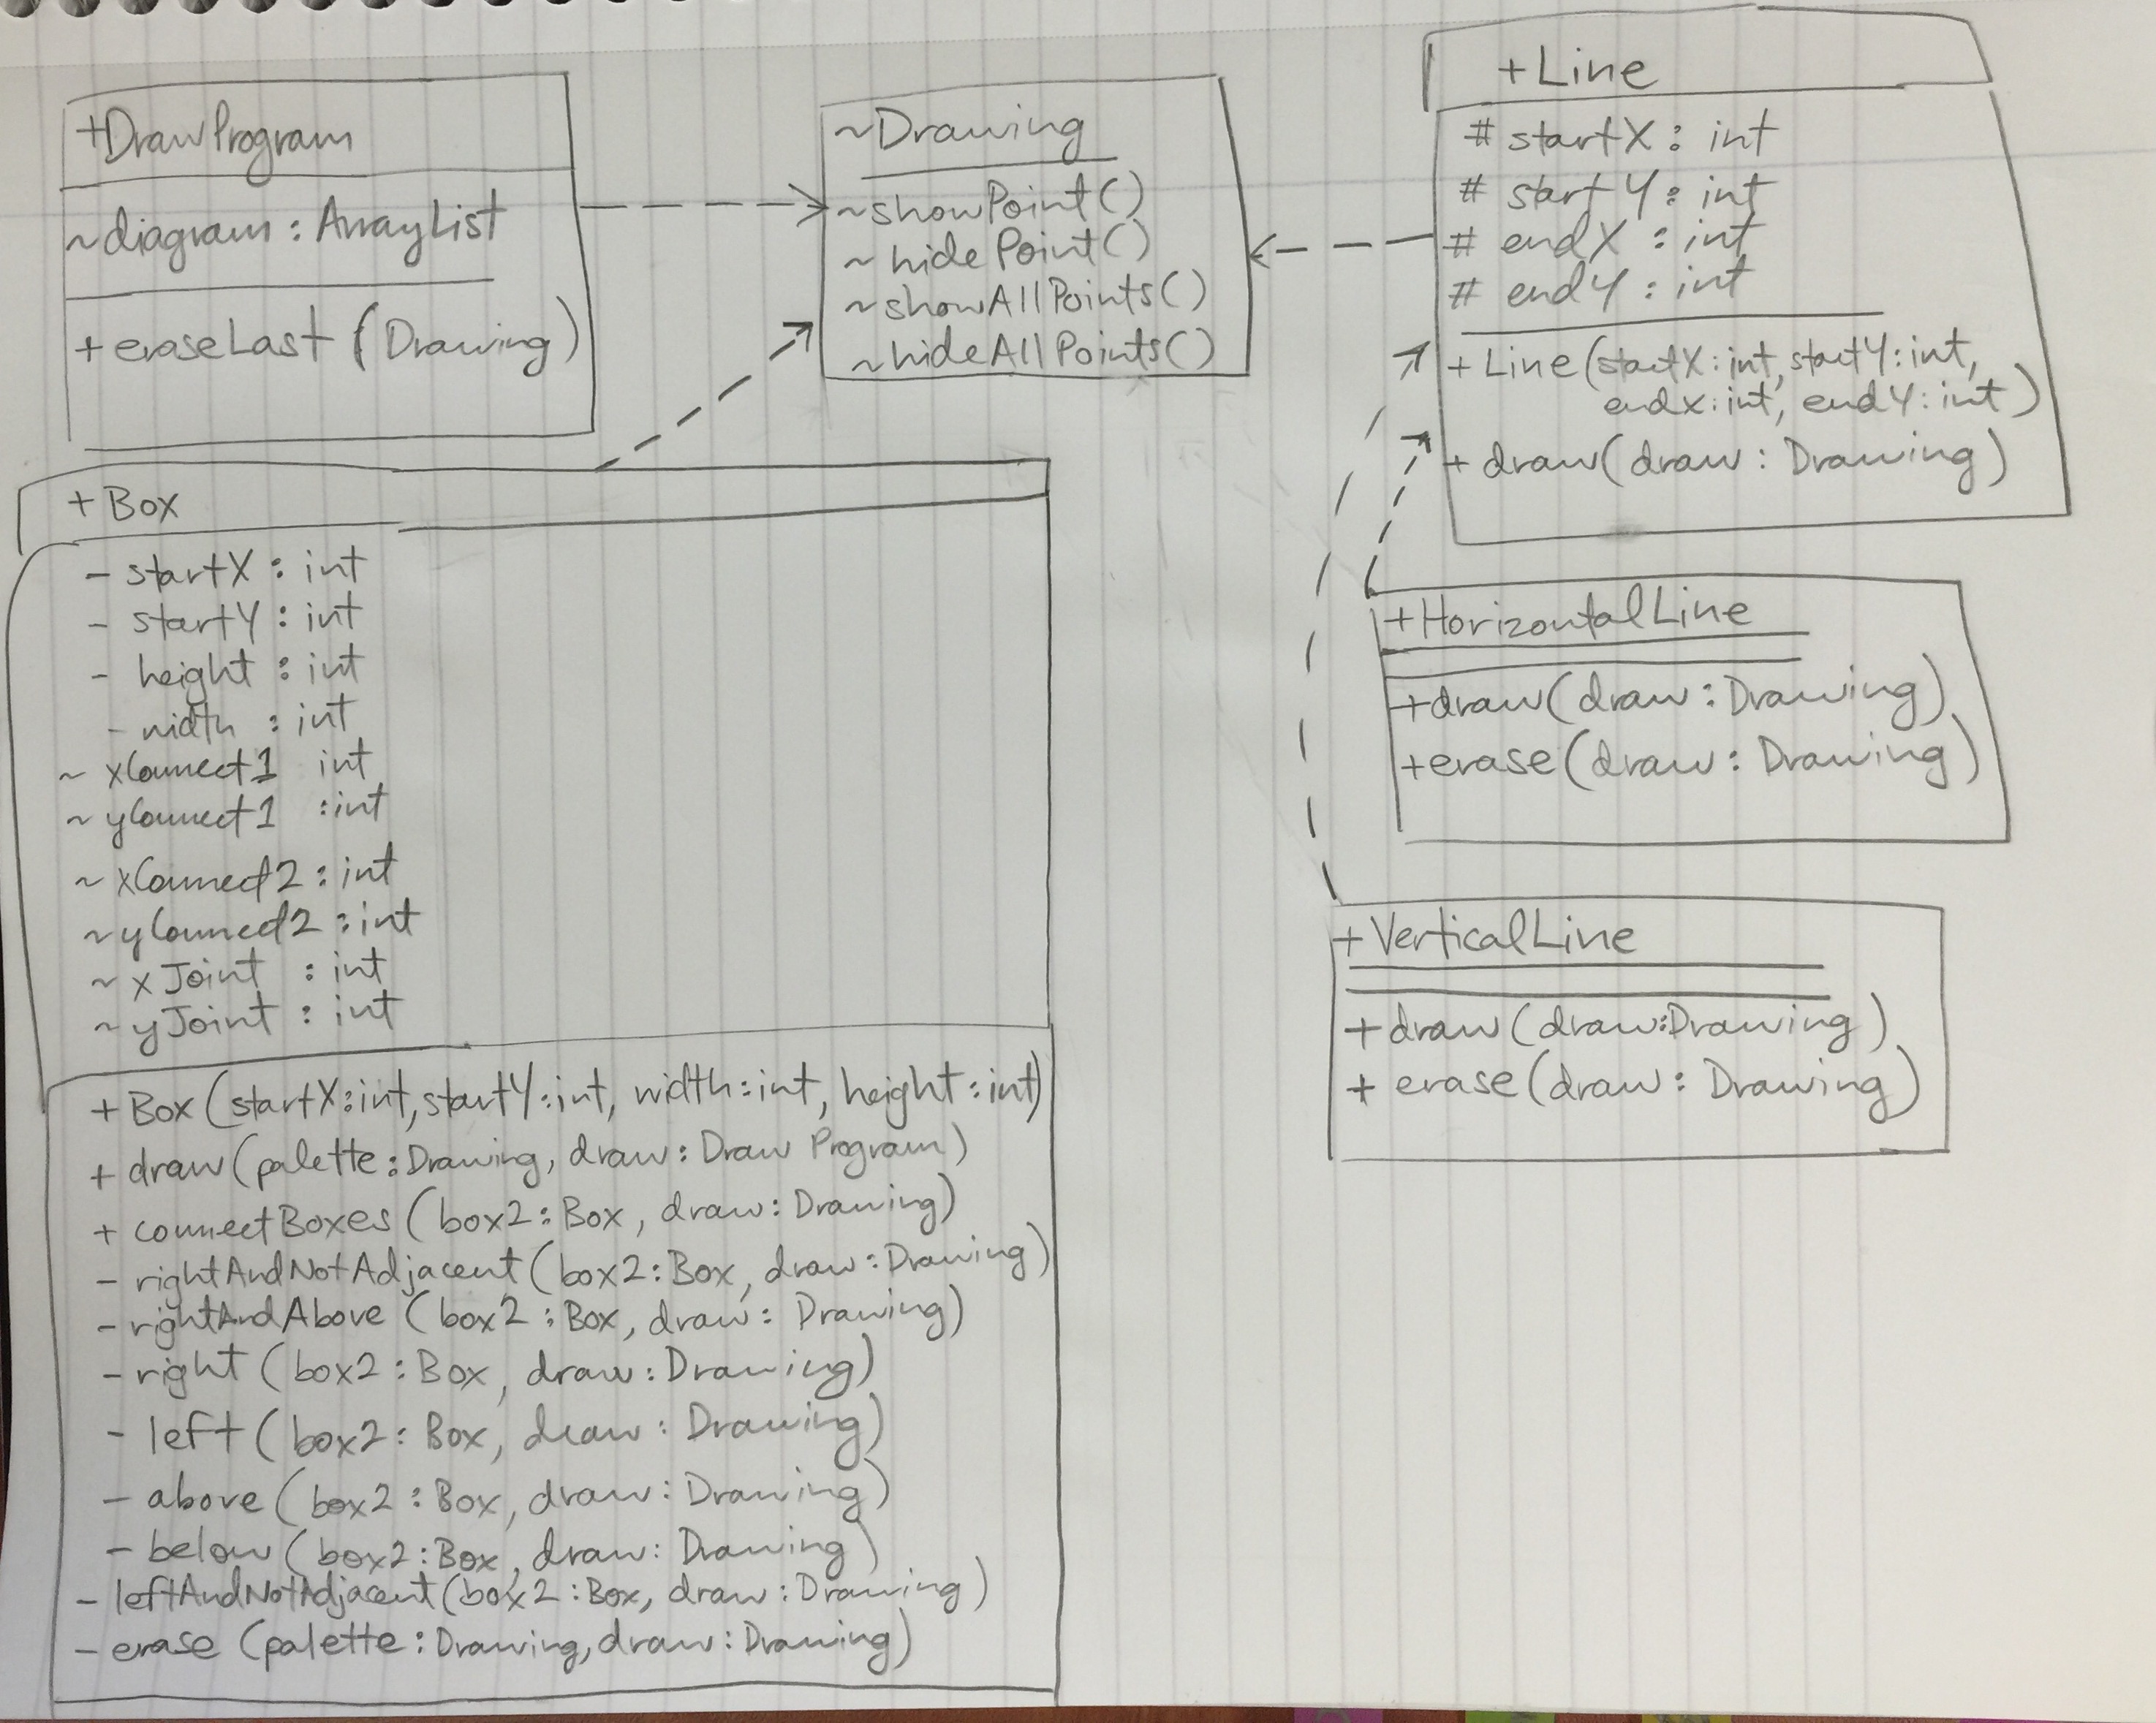 +DrawProgram
~diagram : ArrayList
+eraseLast (Drawing)
~Drawing
~showPoint()
~hidePoint()
~showAllPoints()
~hideAllPoints()
+Line
# startX : int
# startY : int
# endX : int
# endY : int
+Line(startX:int, startY:int,
endX:int, endY:int)
+ draw(draw : Drawing)
+ Box
- startX : int
- startY : int
- height : int
- width : int
~ xConnect1 int
~ yConnect1 :int
~ xConnect2 : int
~ yConnect2 : int
~ xJoint : int
~ yJoint : int
+ Box (startX:int, startY:int, width:int, height:int)
+ draw(palette:Drawing, draw: Draw Program)
+ connectBoxes (box2:Box, draw:Drawing)
- rightAndNotAdjacent (box2:Box, draw:Drawing)
- rightAndAbove (box2:Box, draw: Drawing)
- right (box2:Box, draw:Drawing)
- left (box2: Box, draw: Drawing)
- above (box2:Box, draw:Drawing)
- below (box2:Box, draw: Drawing)
- leftAndNotAdjacent(box2:Box, draw:Drawing)
- erase (palette:Drawing, draw:Drawing)
+HorizontalLine
+draw(draw:Drawing)
+erase(draw: Drawing)
+VerticalLine
+draw(draw:Drawing)
+ erase(draw: Drawing)